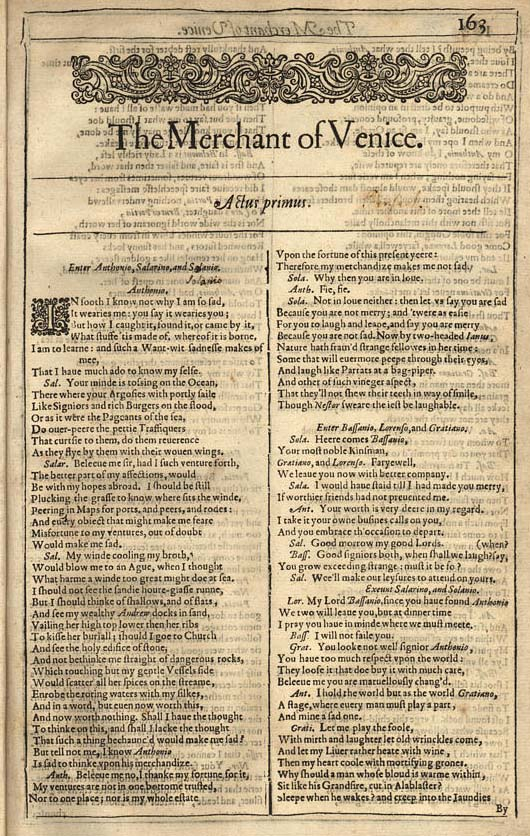 163
The Merchant of Venice.
Actus primus.
Enter Anthonio, Salarino, and Salanio.
Anthonio.
IN sooth I know not why I am so sad,
It wearies me: you say it wearies you;
But how I caught it, found it, or came by it,
What stuffe 'tis made of, whereof it is borne,
I am to learne: and such a Want-wit sadnesse makes of
mee,
That I haue much ado to know my selfe.
Sal. Your minde is tossing on the Ocean,
There where your Argosies with portly saile
Like Signiors and rich Burgers on the flood,
Or as it were the Pageants of the sea,
Do ouer-peere the pettie Traffiquers
That curtsie to them, do them reuerence
As they flye by them with their wouen wings.
Salar. Beleeue me sir, had I such venture forth,
The better part of my affections, would
Be with my hopes abroad. I should be still
Plucking the grasse to know where sits the winde,
Peering in Maps for ports, and peers, and rodes:
And euery obiect that might make me feare
Misfortune to my ventures, out of doubt
Would make me sad.
Sal. My winde cooling my broth,
Would blow me to an Ague, when I thought
What harme a winde too great might doe at sea.
I should not see the sandie houre-glasse runne,
But I should thinke of shallows, and of flats,
And see my wealthy Andrew docks in sand,
Vailing her high top lower then her ribs
To kisse her buriall; should I goe to Church
And see the holy edifice of stone,
And not bethinke me straight of dangerous rocks,
Which touching but my gentle Vessels side
Would scatter all her spices on the streame,
Enrobe the roring waters with my silkes,
And in a word, but euen now worth this,
And now worth nothing. Shall I haue the thought
To thinke on this, and shall I lacke the thought
That such a thing bechaunc'd would make me sad?
But tell not me, I know Anthonio
Is sad to thinke vpon his merchandize.
Anth. Beleeue me no, I thanke my fortune for it,
My ventures are not in one bottome trusted,
Nor to one place; nor is my whole estate
Vpon the fortune of this present yeere:
Therefore my merchandize makes me not sad.
Sola. Why then you are in loue.
Anth. Fie, fie.
Sola. Not in loue neither: then let vs say you are sad
Because you are not merry; and 'twere as easie
For you to laugh and leape, and say you are merry
Because you are not sad. Now by two-headed Ianus,
Nature hath fram'd strange fellowes in her time:
Some that will euermore peepe through their eyes,
And laugh like Parrats at a bag-piper.
And other of such vineger aspect,
That they'll not shew their teeth in way of smile,
Though Nestor sweare the iest be laughable.
Enter Bassanio, Lorenso, and Gratiano.
Sola. Heere comes Bassanio,
Your most noble Kinsman,
Gratiano, and Lorenso. Faryewell,
We leaue you now with better company.
Sala. I would haue staid till I had made you merry,
If worthier friends had not preuented me.
Ant. Your worth is very deere in my regard.
I take it your owne busines calls on you,
And you embrace th'occasion to depart.
Sal. Good morrow my good Lords. (when?
Bass. Good signiors both, when shall we laugh? say,
You grow exceeding strange: must it be so?
Sal. Wee'll make our leysures to attend on yours.
Exeunt Salarino, and Solanio.
Lor. My Lord Bassanio, since you haue found Anthonio
We two will leaue you, but at dinner time
I pray you haue in minde where we must meete.
Bass. I will not faile you.
Grat. You looke not well signior Anthonio,
You haue too much respect vpon the world:
They loose it that doe buy it with much care,
Beleeue me you are maruellously chang'd.
Ant. I hold the world but as the world Gratiano,
A stage, where euery man must play a part,
And mine a sad one.
Grati. Let me play the foole,
With mirth and laughter let old wrinckles come,
And let my Liuer rather heate with wine,
Then my heart coole with mortifying grones.
Why should a man whose bloud is warme within,
Sit like his Grandsire, cut in Alablaster?
Sleepe when he wakes? and creep into the Iaundies
By